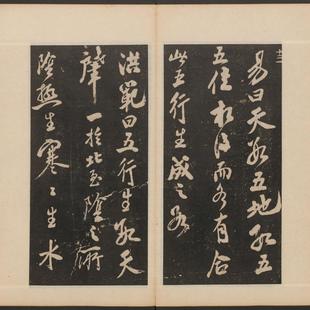 易曰天數五地數五
五位相得而各有合
此五行生成之數
洪範曰五行生數天
肇一於北至陰之所
陰極生寒〻生水